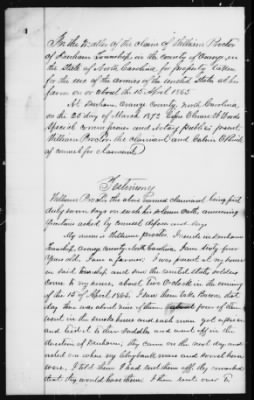 In the Matter of the claim of William Proctor
of Durham Township in the county of Orange, in
the State of North Carolina, for property taken
for the use of the armies of the United States at his
farm on or about the 15 April 1865
At Durham, Orange County, North Carolina
on the 20 day of March 1872 before
Special Commissioner and Notary Public present
William Proctor the claimant and Calvin
of counsel for claimant
Testimony
William Proctor the above named claimant being first
duly sworn says on such his solemn oath, answering
questions asked by counsel deposes and says
My name is William Proctor. I reside in Durham
Township, Orange County North Carolina. I am sixty five
years old. I am a farmer. I was present at my home
in said Township and saw the United States soldiers
come to my house, about two O'clock in the evening
of the 15 of April 1865. I saw them take bacon that
day there was about nine of them four of them
went in the smoke house and each man got a piece
and tied it to their saddles and went off in the
direction of Durham; they came on the next day and
called on when my claybank mare and sorrel horse
were. I told them I had sent them off; they remarked
that they would have them. I then sent over to